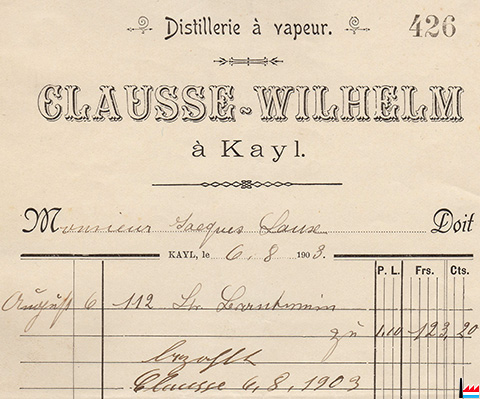 Distillerie à vapeur.
426
CLAUSSE-WILHELM
à Kayl.
Monsieur Jacques Doit
KAYL, le 6, 8 1903.
P. L. Frs. Cts.
August 6 112 Ltr Brantwein
zu 1,10 123,20
bezahlt
Clausse 6, 8, 1903